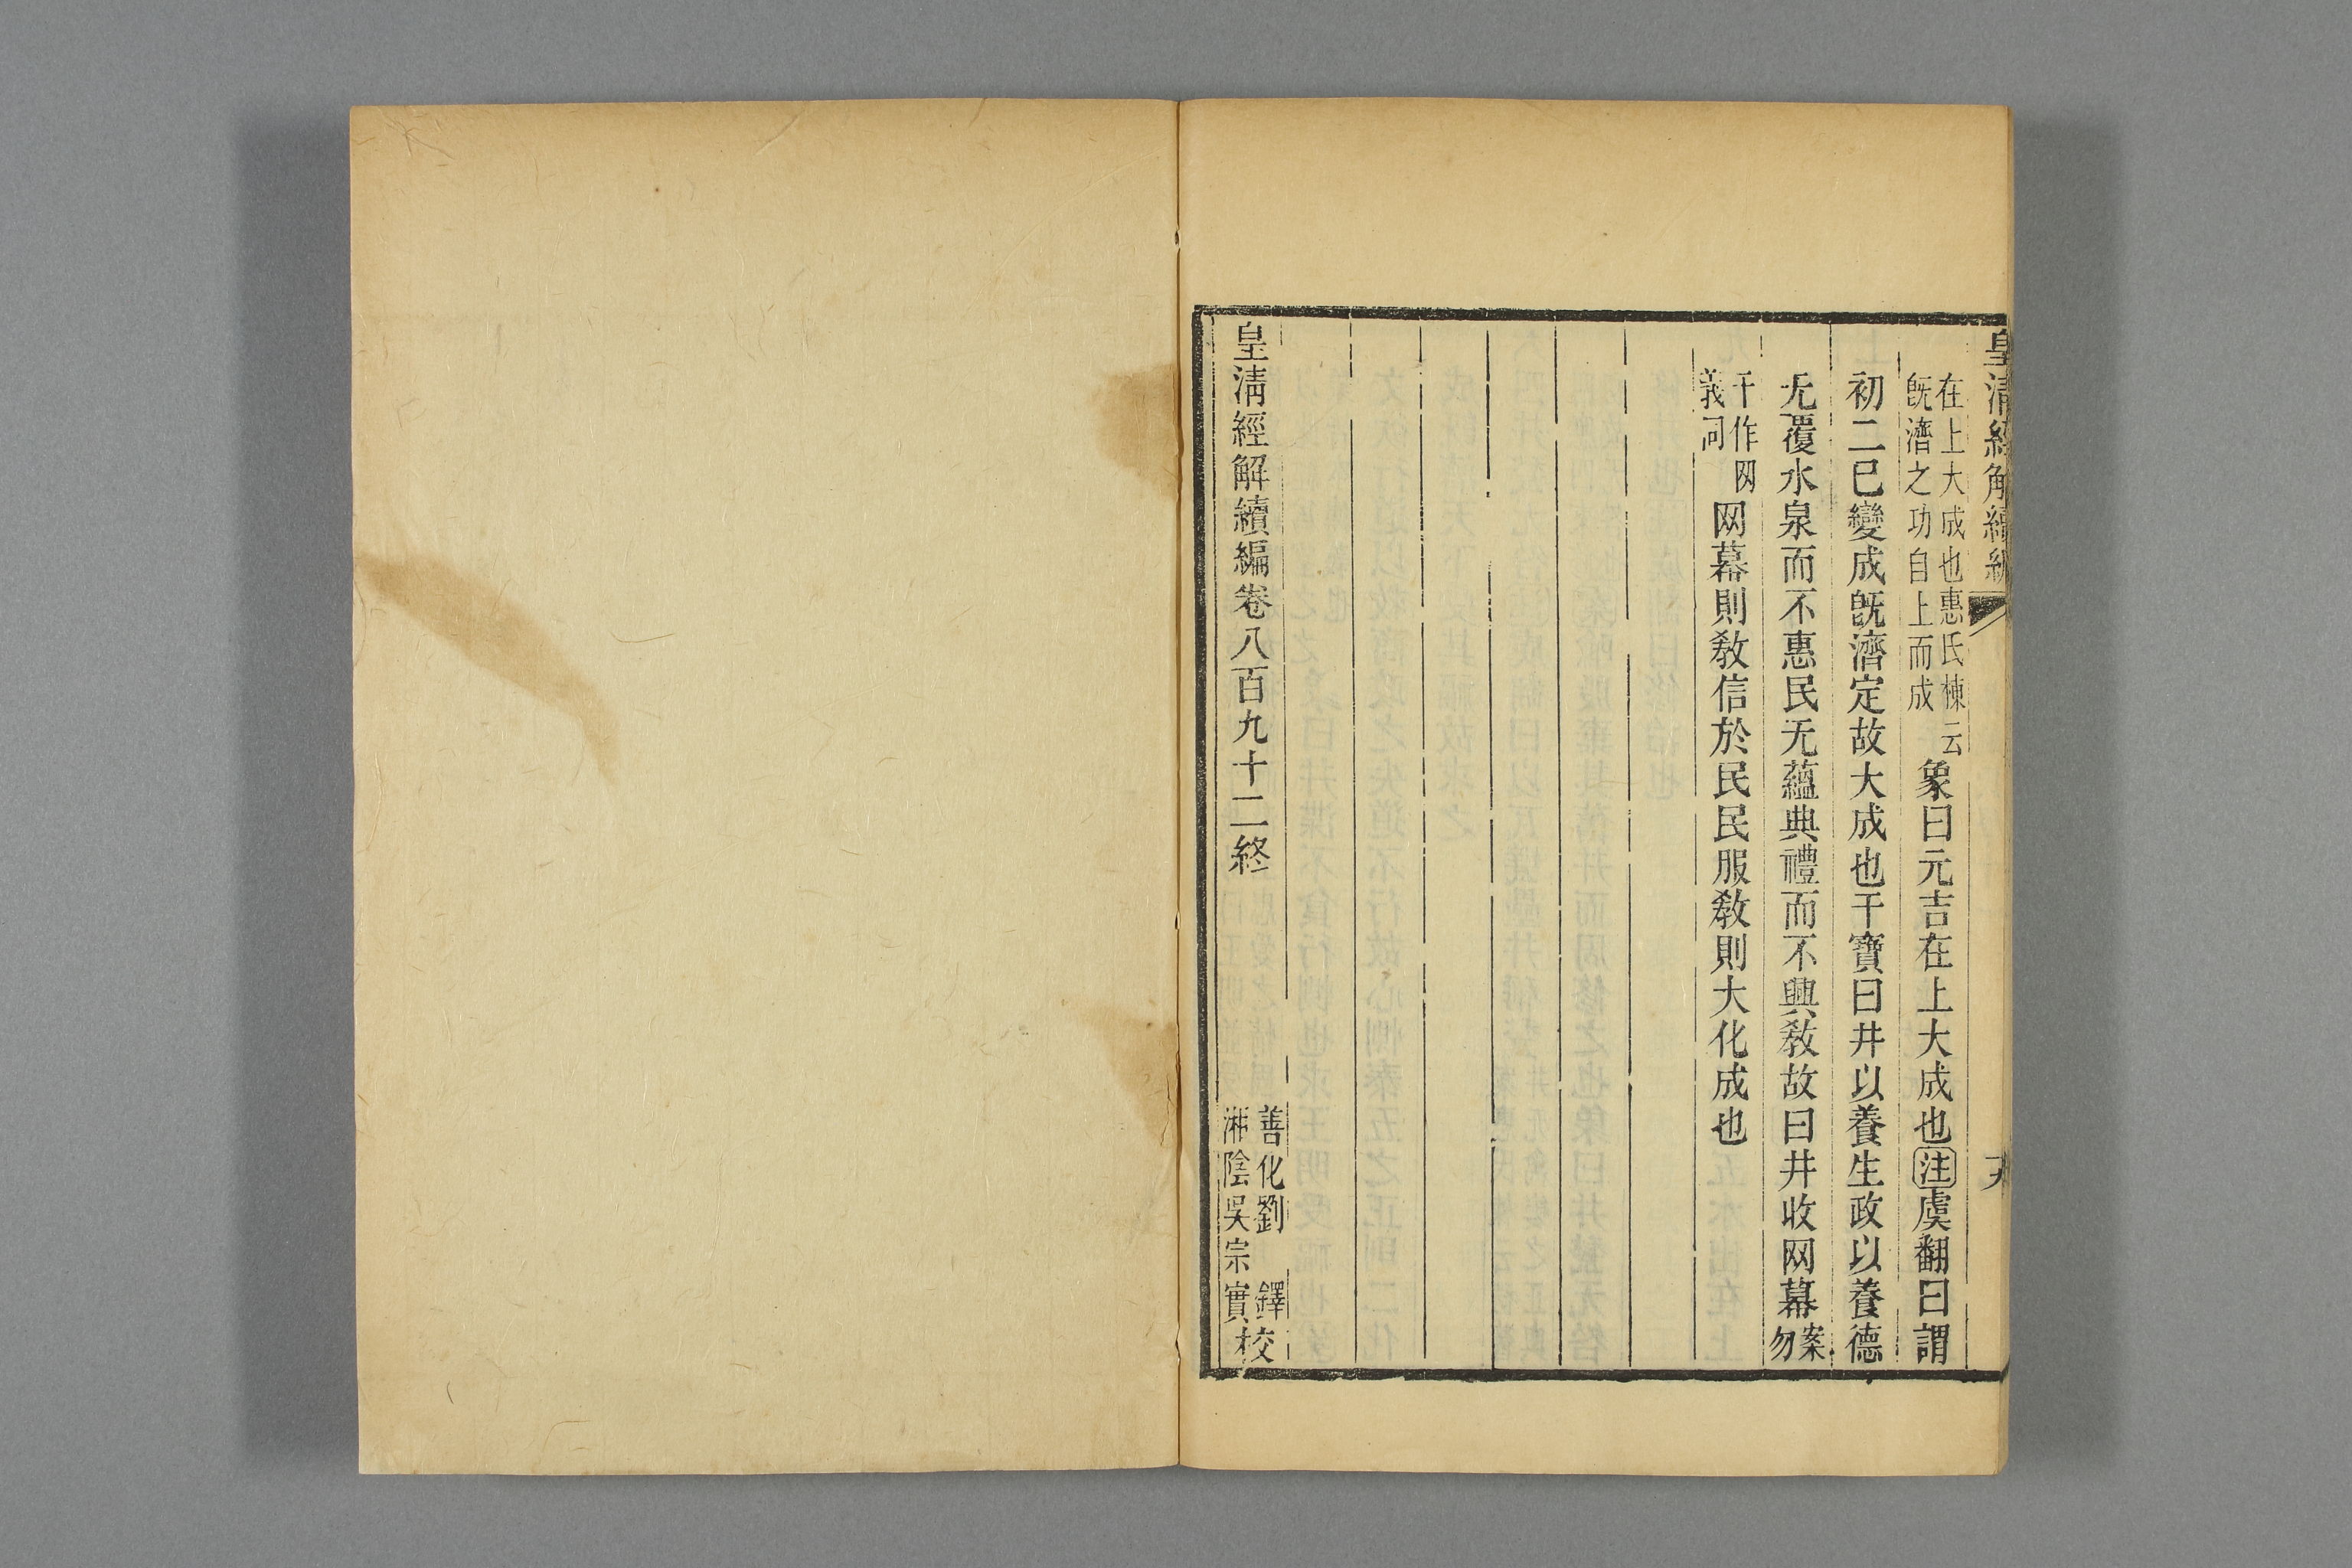 皇清經解續編
在上大成也惠氏棟云
旣濟之功自上而成
象曰元吉在上大成也注虞翻曰謂
初二已變成旣濟定故大成也干寶曰井以養生政以養德
无覆水泉而不惠民无蘊典禮而不興敎故曰井收网幕案
勿
干作网
義同
网幕則敎信於民民服敎則大化成也
皇清經解續編卷八百九十二終
善化劉 鐸
湘陰吳宗實
校